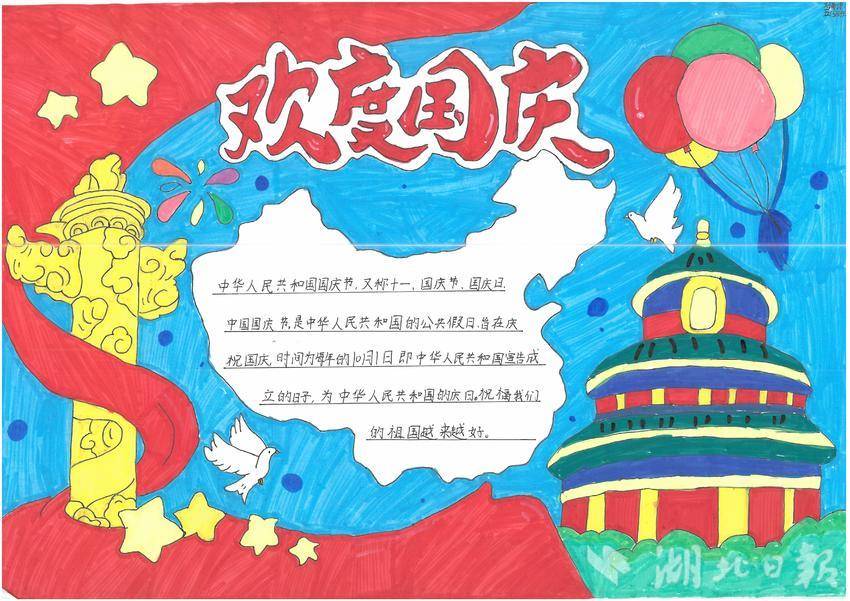 欢度国庆
中华人民共和国国庆节，又称十一、国庆节、国庆日
中国国庆节，是中华人民共和国的公共假日，旨在庆
祝国庆，时间为每年的10月1日即中华人民共和国宣告成
立的日子，为中华人民共和国的庆日。祝福我们
的祖国越来越好。
湖北日报